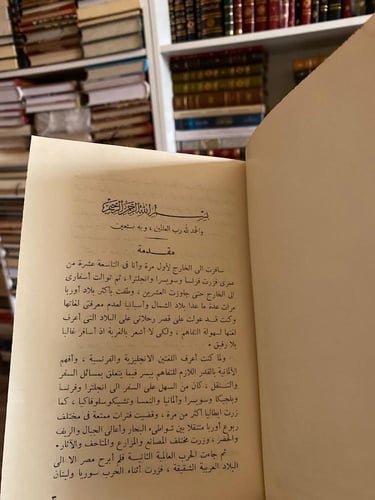 بسم الله الرحمن الرحيم
والحمد لله رب العالمين ، وبه نستعين
مقدمة
سافرت الى الخارج لأول مرة وأنا فى التاسعة عشرة من
عمرى فزرت فرنسا وسويسرا وانجلترا ، ثم توالت أسفارى
الى الخارج حتى جاوزت العشرين ، وطفت بأكثر بلاد أوربا
مرات عدة ما عدا بلاد الشمال وأسبانيا لعدم معرفتى لغاتها
وكنت قد عولت على قصر رحلاتى على البلاد التى أعرف
لغتها لسهولة التفاهم ، ولكى لا أشعر بالغربة اذ أسافر غالبا
بلا رفيق .
ولما كنت أعرف اللغتين الانجليزية والفرنسية ، وأفهم
الألمانية بالقدر اللازم للتفاهم بيسر فيما يتعلق بمسائل السفر
والتنقل ، كان من السهل على السفر الى انجلترا وفرنسا
وبلجيكا وسويسرا وألمانيا والنمسا وتشيكوسلوفاكيا ، كما
زرت ايطاليا أكثر من مرة ، وقضيت فترات ممتعة فى مختلف
ربوع أوربا متنقلا بين شواطىء البحار وأعالى الجبال والريف
والحضر ، وزرت مختلف المصانع والمزارع والمتاحف والآثار .
ثم جاءت الحرب العالمية الثانية فلم أبرح مصر الا الى
البلاد العربية الشقيقة ، فزرت أثناء الحرب سوريا ولبنان
٣